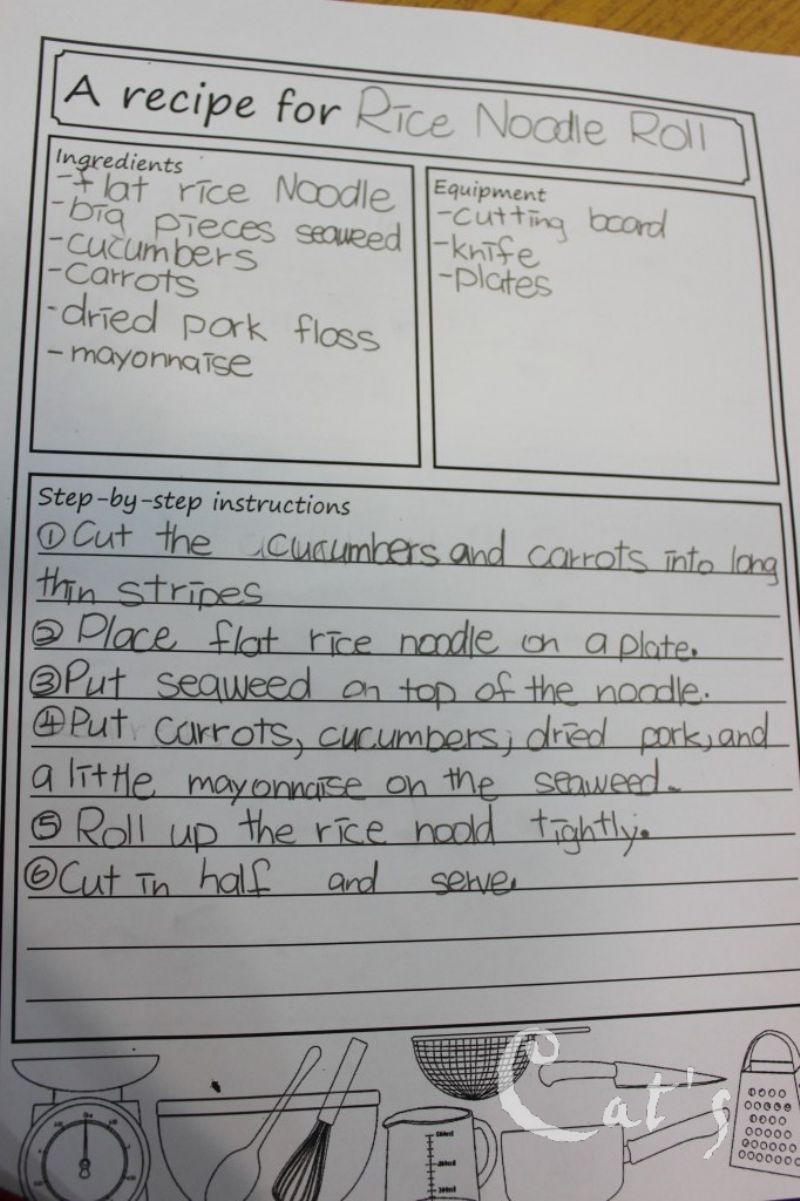 A recipe for Rice Noodle Roll
Ingredients
-flat rice Noodle
-big pieces seaweed
-cucumbers
-carrots
-dried pork floss
-mayonnaise
Equipment
-cutting board
-knife
-plates
Step-by-step instructions
①Cut the cucumbers and carrots into long
thin stripes
② Place flat rice noodle on a plate.
③Put seaweed on top of the noodle.
④Put carrots, cucumbers, dried pork, and
a little mayonnaise on the seaweed.
⑤ Roll up the rice noold tightly.
⑥Cut in half and serve.
Cat's